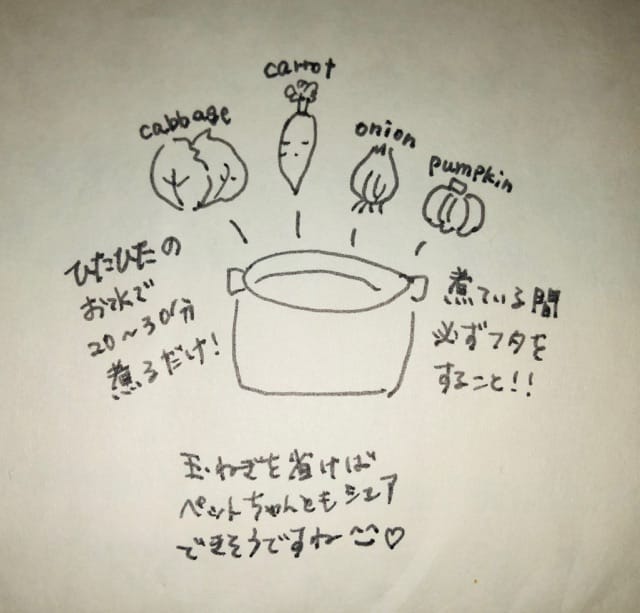 carrot
cabbage
onion
pumpkin
ひたひたの
お水で
20〜30分
煮るだけ!
煮ている間
必ずフタを
すること!!
玉ねぎを省けば
ペットちゃんともシェア
できそうですね